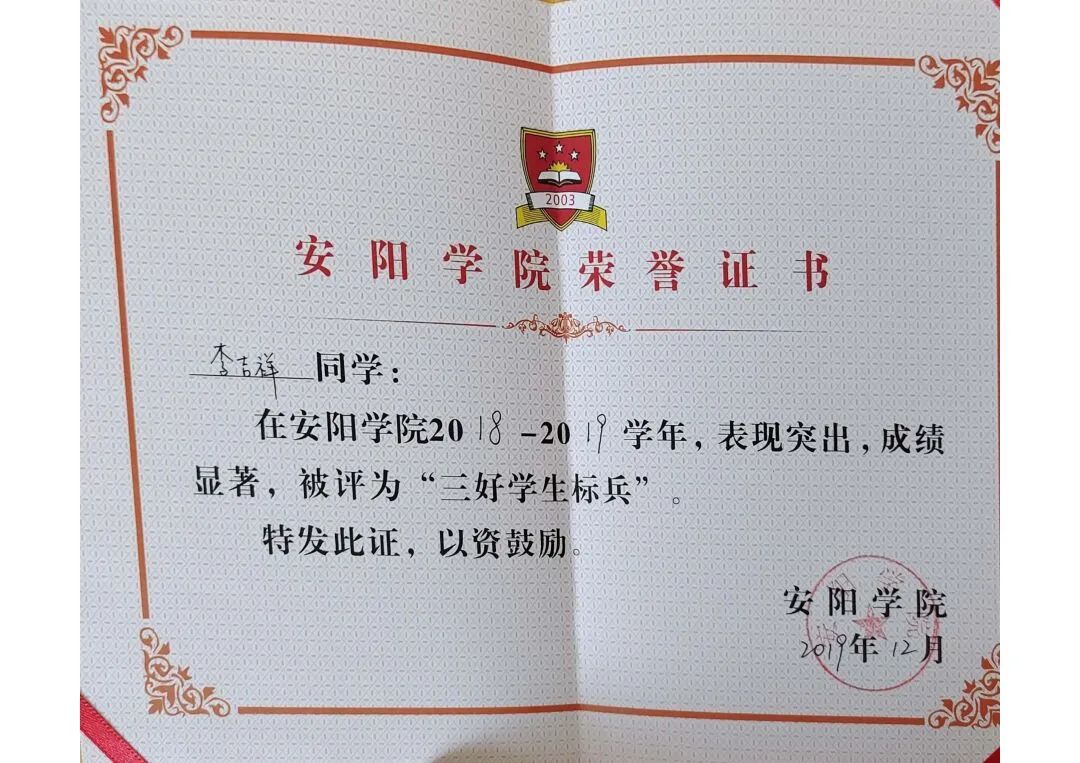 2003
安阳学院荣誉证书
李吉祥同学：
在安阳学院2018-2019学年，表现突出，成绩
显著，被评为“三好学生标兵”。
特发此证，以资鼓励。
安阳学院
2019年12月